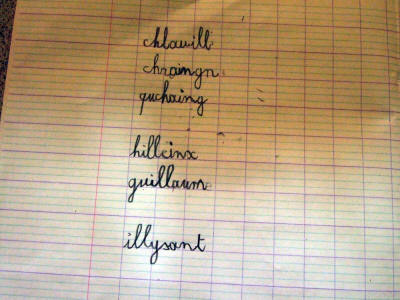 chlauill
chraingn
quchaing
hilleinx
guillaum
illysant